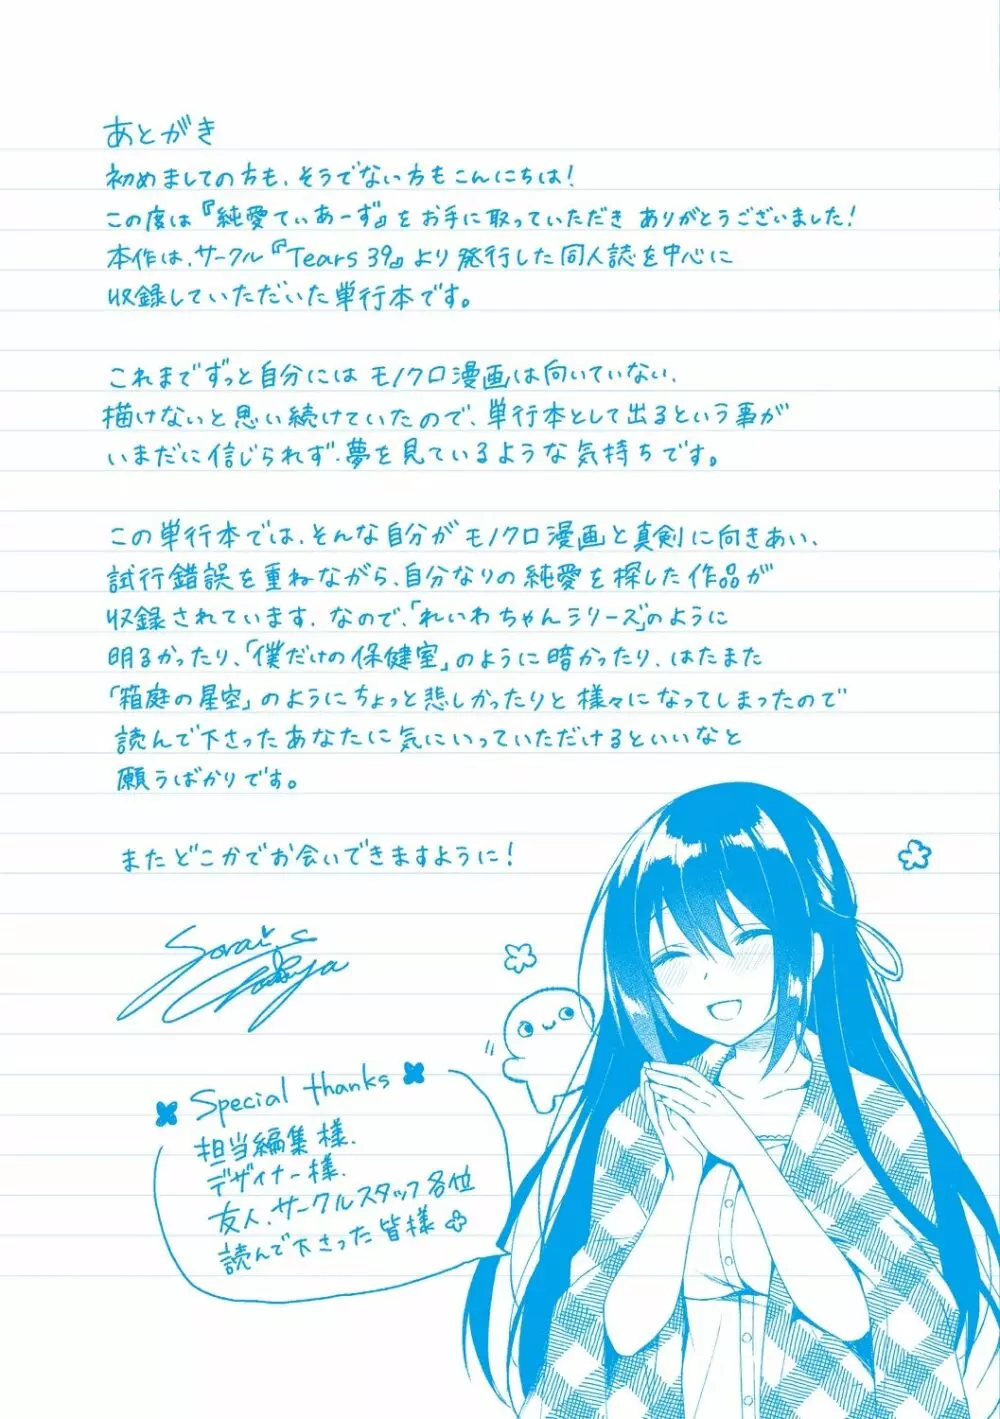 あとがき
初めましての方も、そうでない方もこんにちは！
この度は『純愛てぃあーず』をお手に取っていただき ありがとうございました！
本作は、サークル『Tears 39』より発行した同人誌を中心に
収録していただいた単行本です。
これまでずっと自分には モノクロ漫画は向いていない、
描けないと思い続けていたので、単行本として出るという事が
いまだに信じられず、夢を見ているような気持ちです。
この単行本では、そんな自分がモノクロ漫画と真剣に向きあい、
試行錯誤を重ねながら、自分なりの純愛を探した作品が
収録されています。なので、「れいわちゃんシリーズ」のように
明るかったり、「僕だけの保健室」のように暗かったり、はたまた
「箱庭の星空」のようにちょっと悲しかったりと様々になってしまったので
読んで下さったあなたに気にいっていただけるといいなと
願うばかりです。
またどこかでお会いできますように！
Special thanks
担当編集様、
デザイナー様、
友人、サークルスタッフ各位
読んで下さった皆様